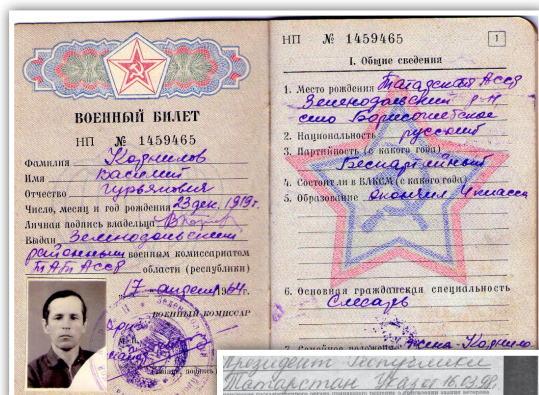 ВОЕННЫЙ БИЛЕТ
НП № 1459465
Фамилия
Имя Василий
Отчество Гурьянович
Число, месяц и год рождения 23 дек. 1919г.
Личная подпись владельца
Выдан Зеленодольским
районным военным комиссариатом
ТАТ АССР области (республики)
17 апреля 1964 г.
ВОЕННЫЙ КОМИССАР
НП № 1459465
1
I. Общие сведения
1. Место рождения Татарская АССР
Зеленодольский р-н
село Борисоглебское
2. Национальность русский
3. Партийность (с какого года)
Беспартийный
4. Состоит ли в ВЛКСМ (с какого года)
5. Образование окончил 4 класса
6. Основная гражданская специальность
Слесарь
7. Семейное положение жена
Президент Республики
Татарстан Указ от 16.03.98.